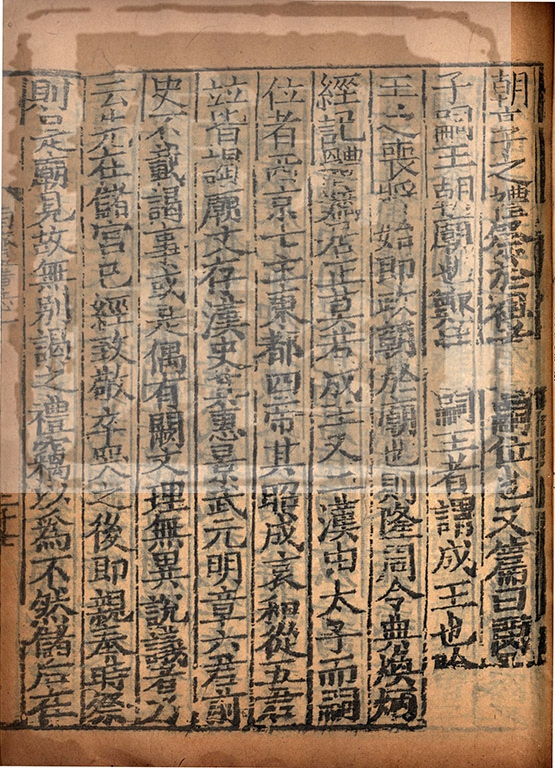 朝享之禮祭於祖考 嗣位也又篇曰閔
子嗣王朝廟也鄭注 嗣王者謂成王也除
王之喪將始即政朝於廟也則隆周令典煥炳
經記體嫡居正莫若成王又二漢由太子而嗣
位者西京七主東都四帝其昭成哀和從五君
並皆謁廟文存漢史其惠景武元明章六君前
史不載謁事或是偶有闕文理無異說議者乃
云先在儲宮已經致敬卒哭之後即親奉時祭
則是廟見故無別謁之禮竊以為不然儲后在